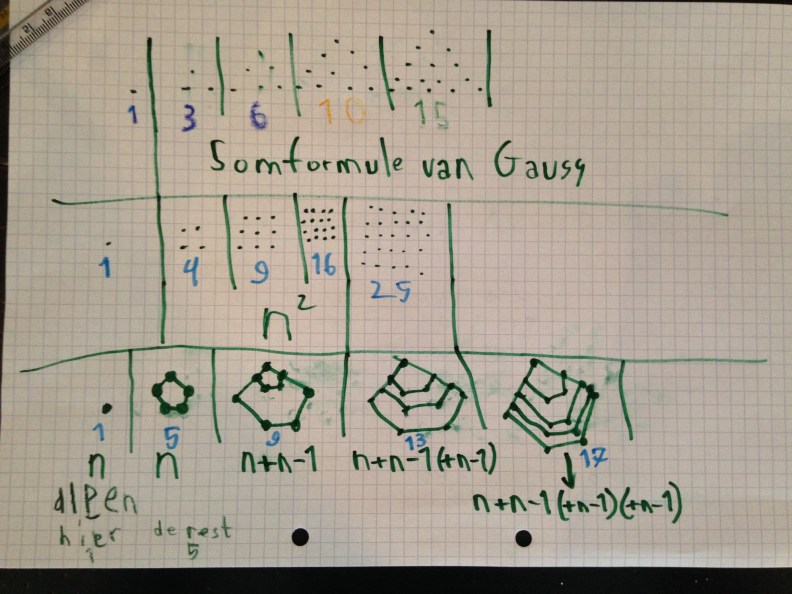 1 3 6 10 15
Somformule van Gauss
1 4 9 16 25
n²
1 5 9 13 17
n n n+n-1 n+n-1(+n-1)
n+n-1(+n-1)(+n-1)
alleen
hier de rest
1 5